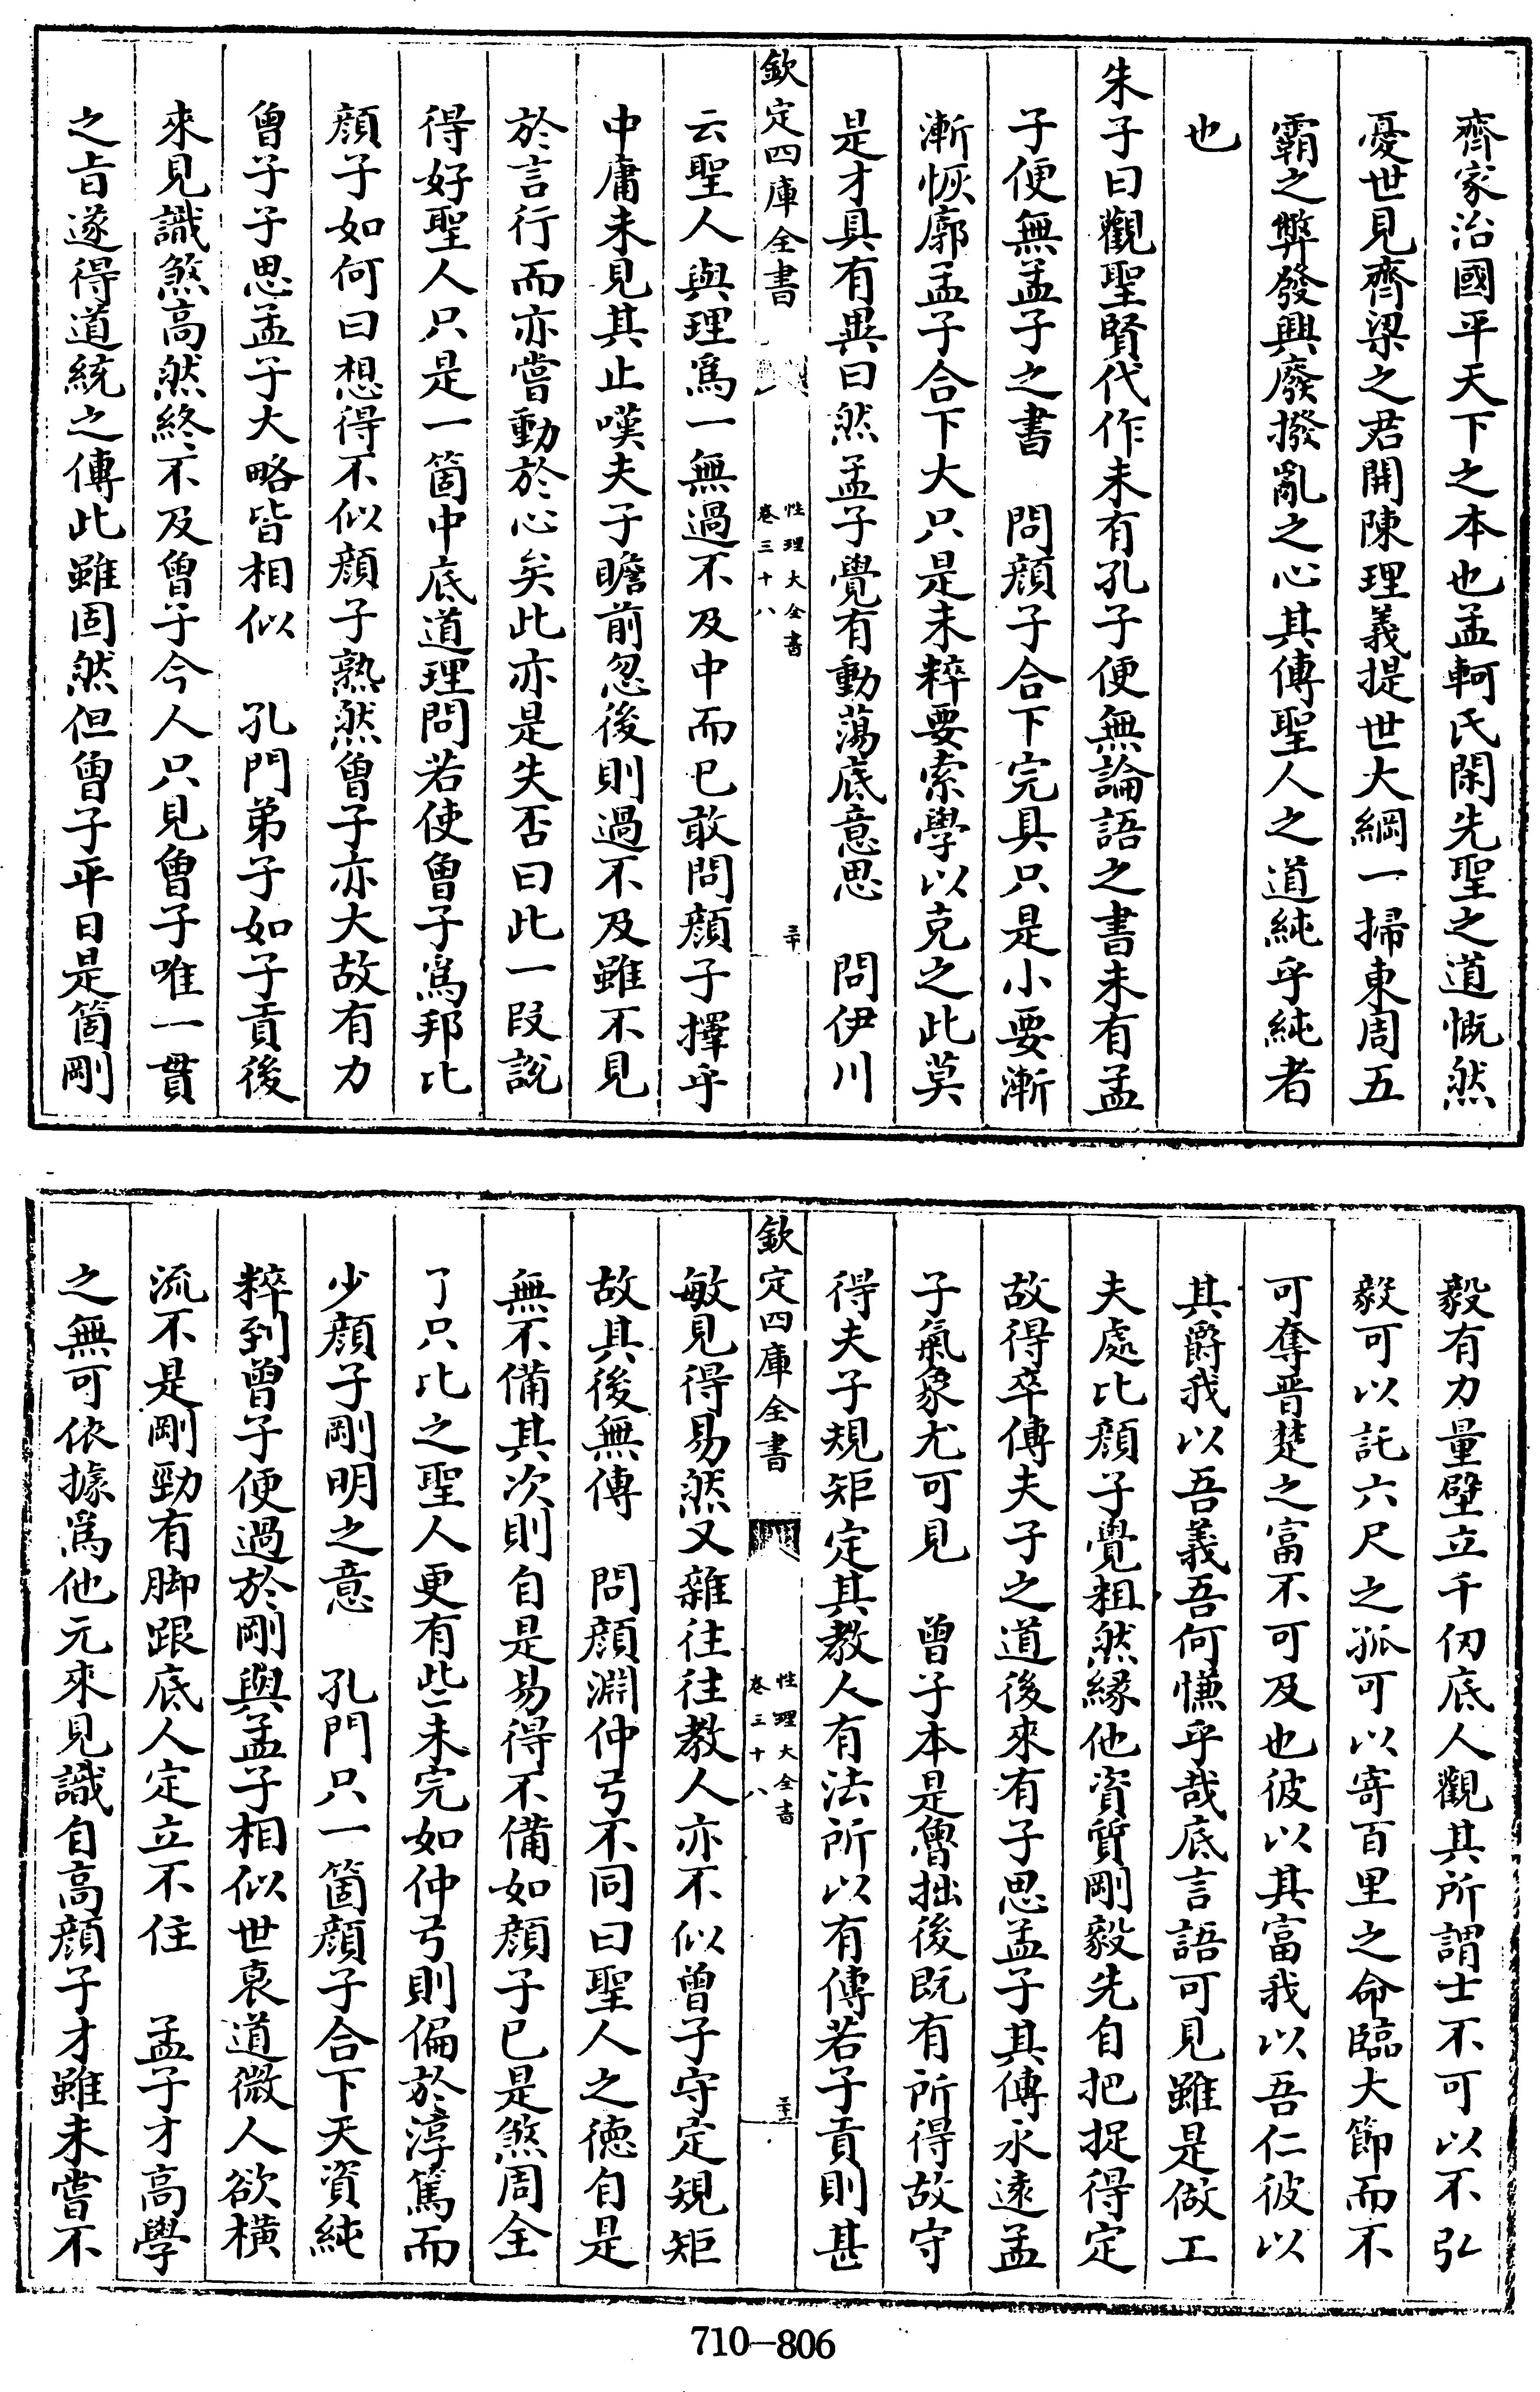 齊家治國平天下之本也孟軻氏閑先聖之道慨然
憂世見齊梁之君開陳理義提世大綱一掃東周五
霸之弊發興廢撥亂之心其傳聖人之道純乎純者
也
朱子曰觀聖賢代作未有孔子便無論語之書未有孟
子便無孟子之書　問顔子合下完具只是小要漸
漸恢廓孟子合下大只是未粹要索學以克之此莫
是才具有異曰然孟子覺有動蕩底意思　問伊川
欽定四庫全書
性理大全書
卷三十八
三十
云聖人與理爲一無過不及中而已敢問顔子擇乎
中庸未見其止嘆夫子瞻前忽後則過不及雖不見
於言行而亦嘗動於心矣此亦是失否曰此一段說
得好聖人只是一箇中底道理問若使曾子爲邦比
顔子如何曰想得不似顔子熟然曾子亦大故有力
曾子子思孟子大略皆相似　孔門弟子如子貢後
來見識煞高然終不及曾子今人只見曾子唯一貫
之㫖遂得道統之傳此雖固然但曾子平日是箇剛
毅有力量壁立千仞底人觀其所謂士不可以不弘
毅可以託六尺之孤可以寄百里之命臨大節而不
可奪晋楚之富不可及也彼以其富我以吾仁彼以
其爵我以吾義吾何慊乎哉底言語可見雖是做工
夫處比顔子覺粗然縁他資質剛毅先自把捉得定
故得卒傳夫子之道後來有子思孟子其傳永逺孟
子氣象尤可見　曾子本是魯拙後既有所得故守
得夫子規矩定其教人有法所以有傳若子貢則甚
欽定四庫全書
性理大全書
卷三十八
三十一
敏見得易然又雜往往教人亦不似曾子守定規矩
故其後無傳　問顔淵仲弓不同曰聖人之徳自是
無不備其次則自是易得不備如顔子已是煞周全
了只比之聖人更有些未完如仲弓則偏於淳篤而
少顔子剛明之意　孔門只一箇顔子合下天資純
粹到曾子便過於剛與孟子相似世衰道微人欲横
流不是剛勁有脚跟底人定立不住　孟子才高學
之無可依據爲他元來見識自高顔子才雖未嘗不
710-806